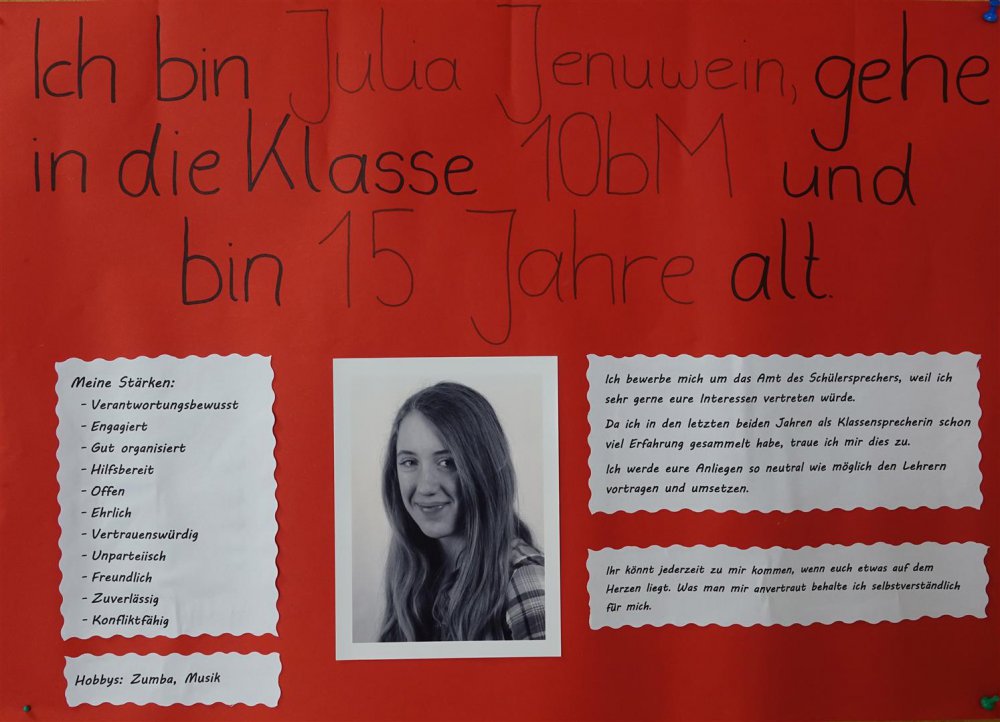 Ich bin Julia Jenuwein, gehe
in die Klasse 10bM und
bin 15 Jahre alt.
Meine Stärken:
- Verantwortungsbewusst
- Engagiert
- Gut organisiert
- Hilfsbereit
- Offen
- Ehrlich
- Vertrauenswürdig
- Unparteiisch
- Freundlich
- Zuverlässig
- Konfliktfähig
Hobbys: Zumba, Musik
Ich bewerbe mich um das Amt des Schülersprechers, weil ich
sehr gerne eure Interessen vertreten würde.
Da ich in den letzten beiden Jahren als Klassensprecherin schon
viel Erfahrung gesammelt habe, traue ich mir dies zu.
Ich werde eure Anliegen so neutral wie möglich den Lehrern
vortragen und umsetzen.
Ihr könnt jederzeit zu mir kommen, wenn euch etwas auf dem
Herzen liegt. Was man mir anvertraut behalte ich selbstverständlich
für mich.